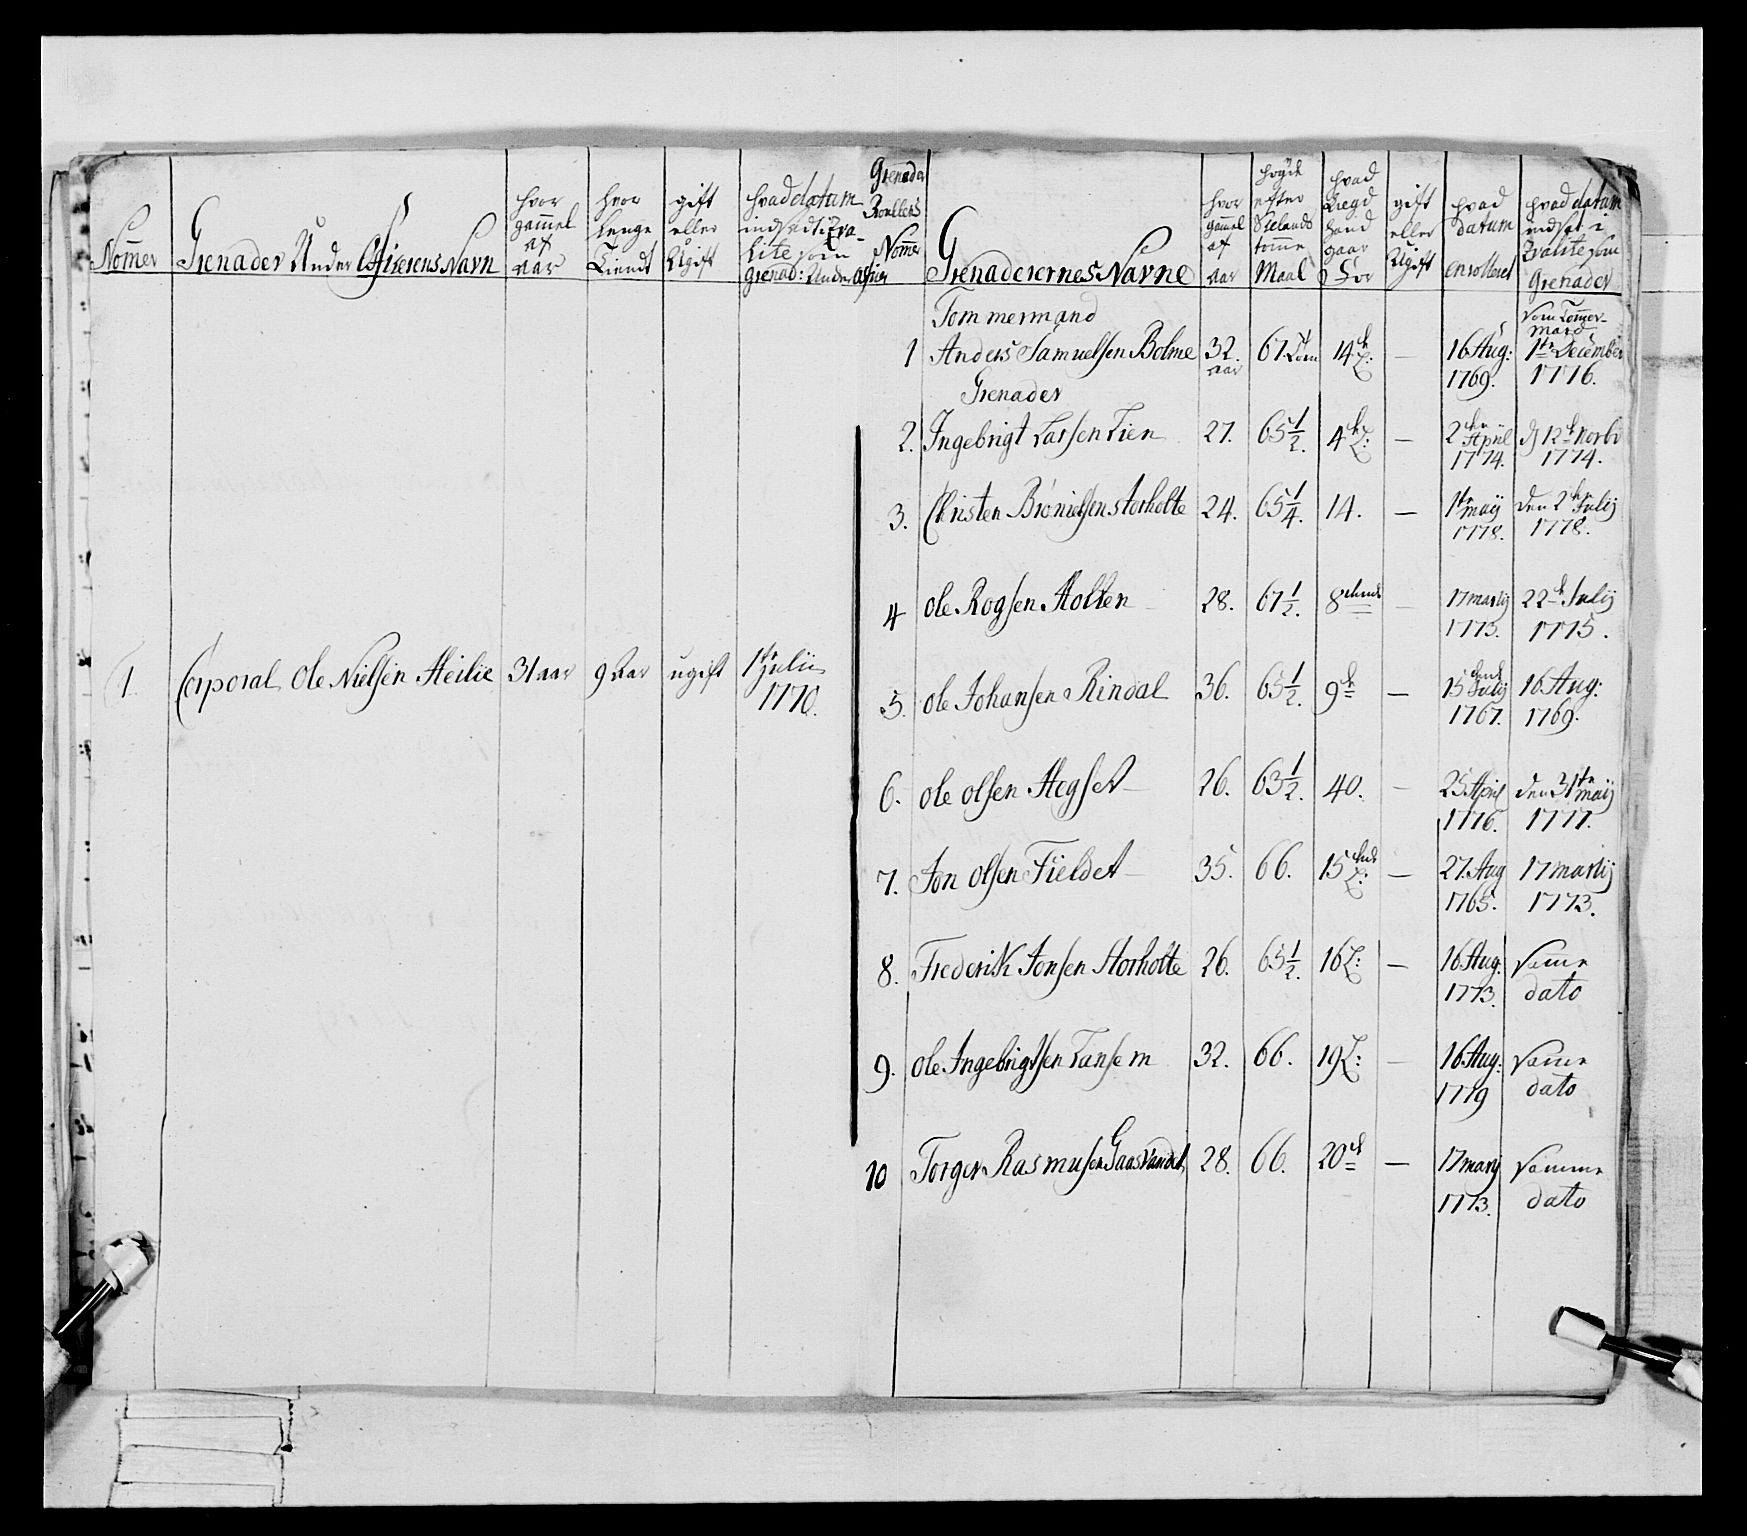 Nom̅er
Grenader Under Officerens Navn
hvor gam̅el af aar
hvor Lenge Tiendt
gift eller Ugift
hvad datum indsadt i Qvalite som Grenad: Under Offier
Grenader Roullens Nom̅er
Grenaderernes Navne
hvor gam̅el af aar
høyde efter Sielands tom̅e Maal
hvad Lægd hand gaar For
gift eller Ugift
hvad datum enrolleret
hvad datum indsat i Qvalite som Grenader
1. Corporal Ole Nielsen Heilie 31 aar 9 Aar ugift 1te Julii 1770.
Tommermand
1 Anders Samuelsen Bolme 32. aar 67 Tom 14de L: — 16 Aug: 1769. som Tom̅ermand 1te December 1776.
Grenader
2. Ingebrigt Larsen Lien 27. 65 1/2. 4de L: — 2den April 1774. d 12te Novbr 1774.
3. Christen Brönielsen Storholte 24. 65 1/4. 14. — 1te maij 1778. den 2den Julij 1778.
4 Ole Rogsen Holten 28. 67 1/2. 8tende — 17 martij 1773. 22de Julij 1775.
5. Ole Johansen Rindal 36. 65 1/2. 9de — 15dend Julij 1767. 16 Aug: 1769.
6. Ole Olsen Hegset 26. 63 1/2. 40. — 25 April 1776. den 31te maij 1777.
7. Jon Olsen Fieldet 35. 66. 15tende L: — 27. Aug 1765. 17 martij 1773.
8. Frederik Jonsen Storholte 26. 65 1/2. 16 L: — 16 Aug: 1773. Sam̅e dato
9. Ole Ingebrigtsen Tansem 32. 66. 19 L: — 16 Aug: 1779 Sam̅e dato
10 Torger Rasmusen Gaasvandet 28. 66. 20de — 17 martij 1773. Samme dato